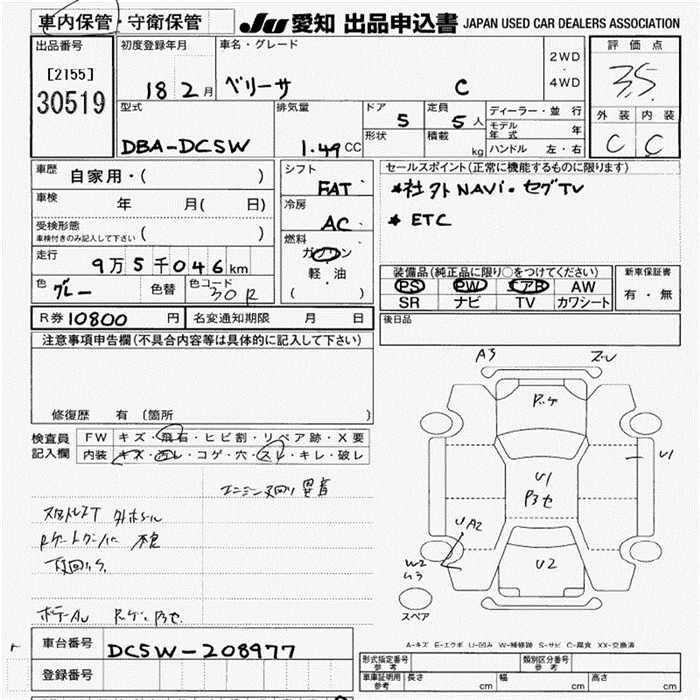 車内保管・守衛保管
JU 愛知 出品申込書 JAPAN USED CAR DEALERS ASSOCIATION
出品番号
[2155]
30519
初度登録年月
18 2月
車名・グレード
ベリーサ C
2WD
・
4WD
評価点
3.5
外装 内装
C C
型式
DBA-DC5W
排気量
1.49CC
ドア
5
定員
5人
形状
積載
kg
ディーラー・並行
モデル年式 年
ハンドル 左・右
車歴
自家用・( )
車検
年 月( 日)
受検形態
車検付きのみ記入して下さい ( )
走行
9万5千046km
色
グレー
色替
色コード
30R
シフト
FAT
冷房
AC
燃料
ガソリン
軽・油
( )
セールスポイント(正常に機能するものに限ります)
*社外NAVi・セグTV
* ETC
装備品(純正品に限り○をつけてください)
PS PW エアB AW
SR ナビ TV カワシート
新車保証書
有・無
R券 10800 円
名変通知期限 月 日
後日品
注意事項申告欄(不具合内容等は具体的に記入して下さい)
修復歴 有 〔箇所 〕
検査員記入欄
FW キズ・飛石・ヒビ割・リペア跡・X要
内装 キズ・汚レ・コゲ・穴・スレ・キレ・破レ
A3
U1
U1
UA2
W2
U2
スペア
A-キズ E-エクボ U-凹み W-補修跡 S-サビ C-腐食 XX-交換済
車台番号
DC5W-208977
登録番号
形式指定番号
参考
類別区分番号
参考
車庫証明用
参考
長さ cm
幅 cm
高さ cm